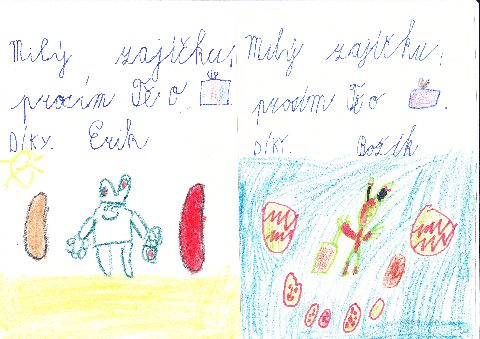 Milý zajíčku,
procím Tě o
DÍKY. Erik
Milý zajíčku,
procím Tě o .
DÍKY. Božík